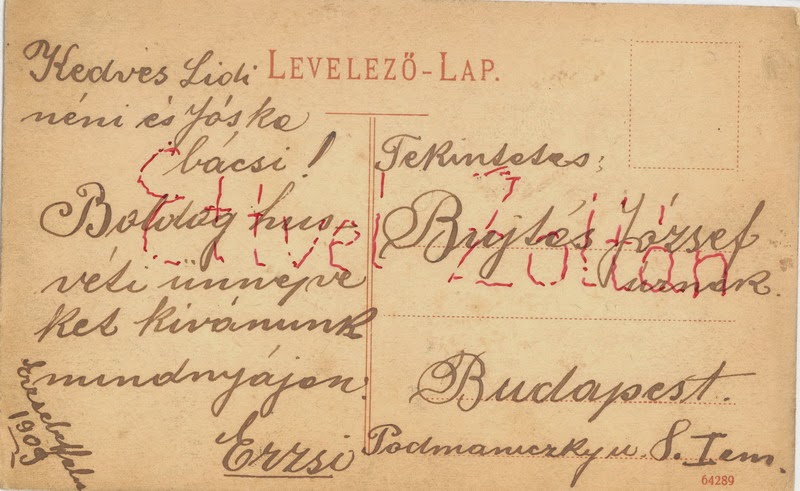 LEVELEZŐ-LAP.
Kedves Lidi
néni és Jóska
bácsi!
Boldog hus
véti ünnepe
ket kivánunk
mindnyájan.
Erzsi
1909
Tekintetes
Bujtás József
urnak.
Budapest.
Podmaniczky u. 8. I em.
Zoltan
64289